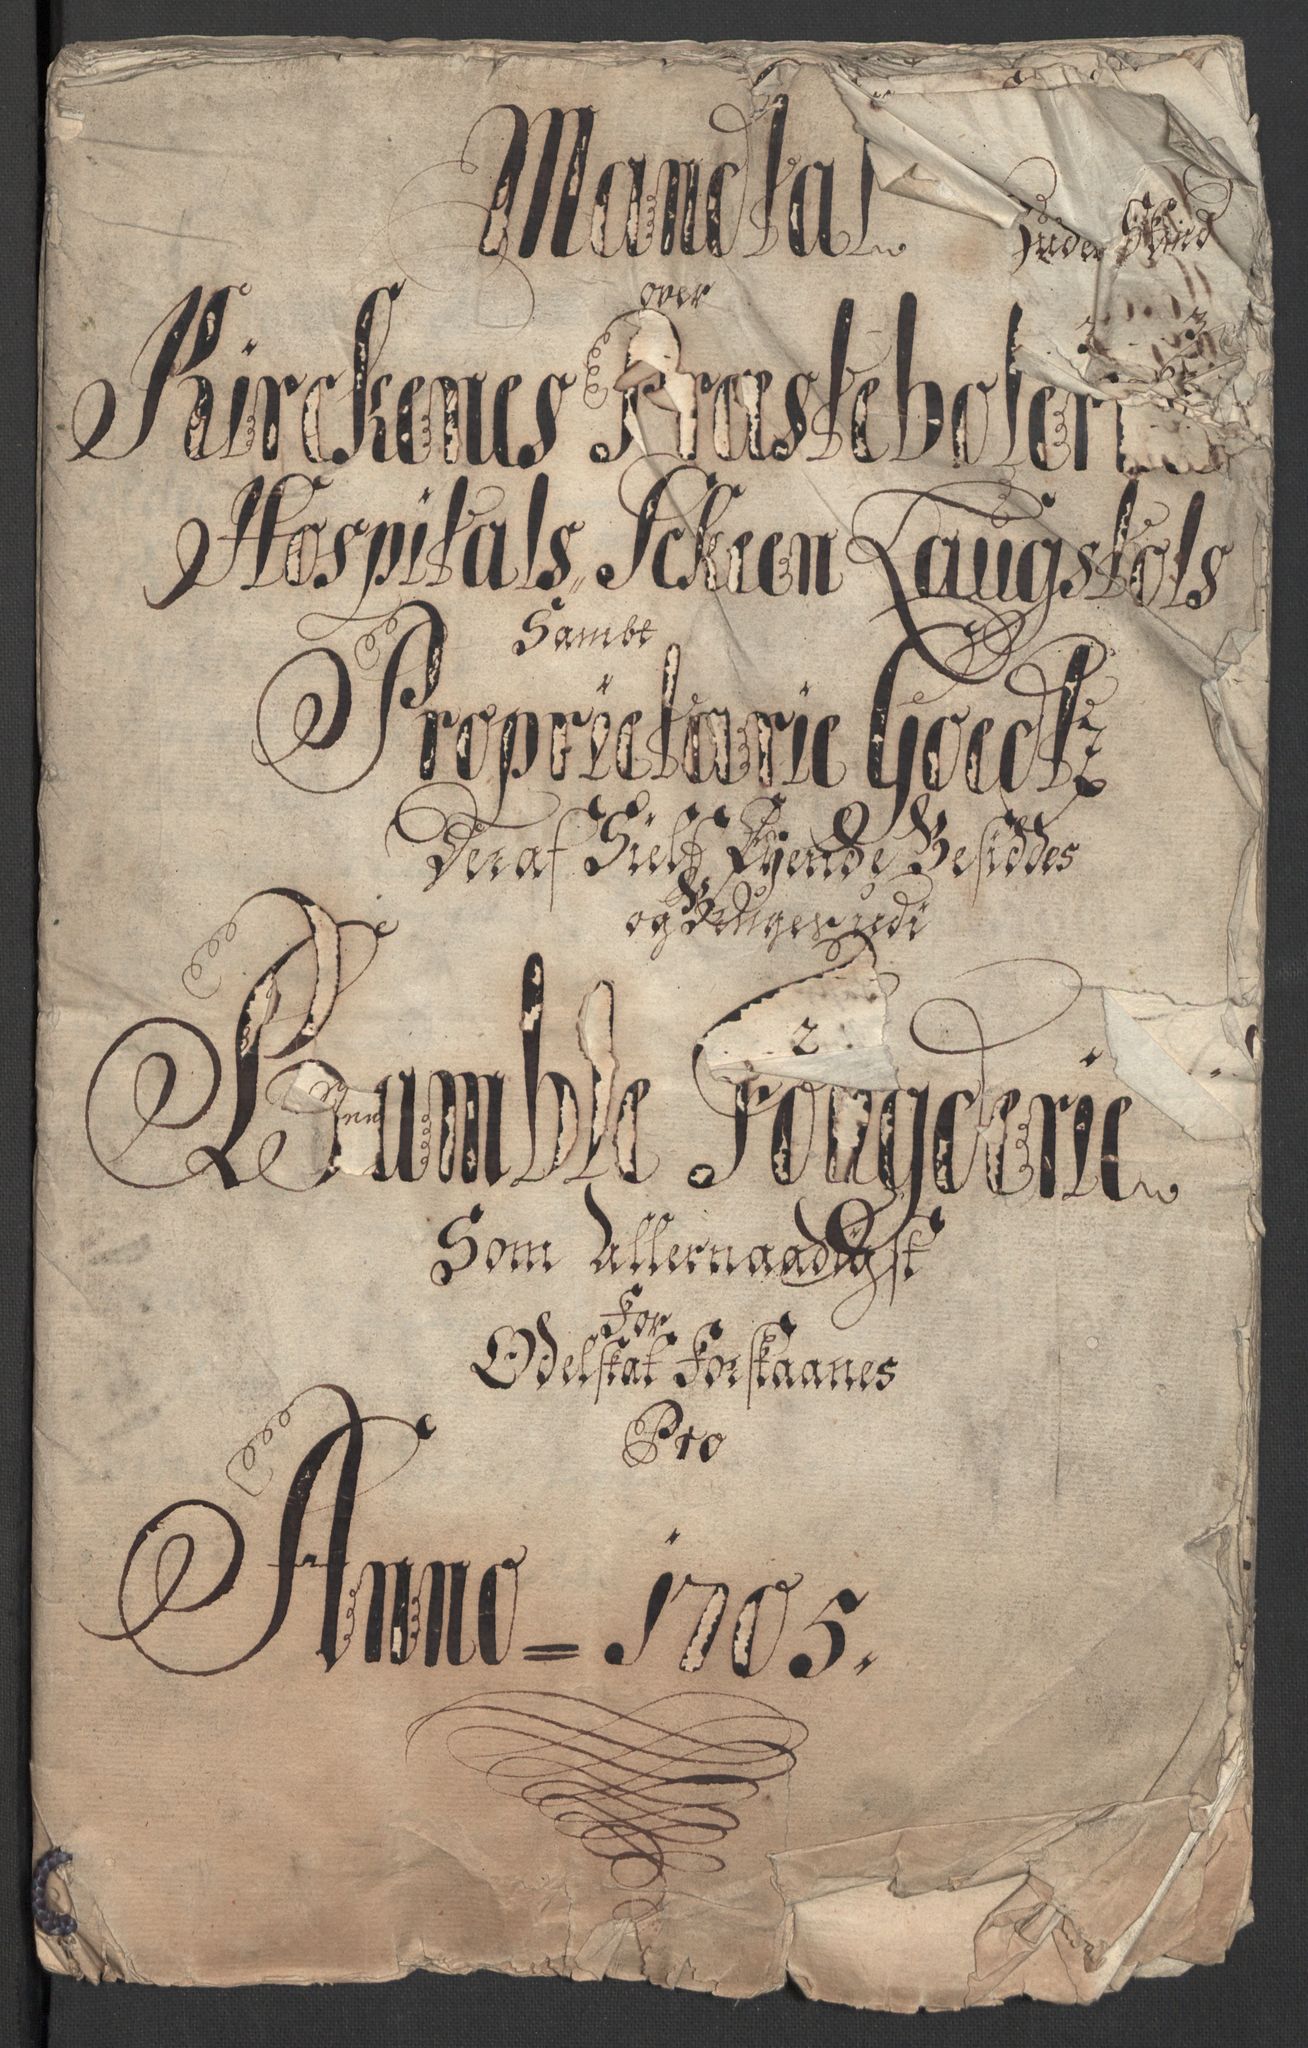 Mandtal
over
Kirckenes Præstebolernes
Hospitals, Sckeen Laugstols
Sambt
Proprietarie Goedtz
Deraf Sielf Eyende Besiddes
og Bruges udi
Bamble Fougderie
2
Som Allernaadigst
For
Odelskat Forskaanes
Pro
Anno = 1705.